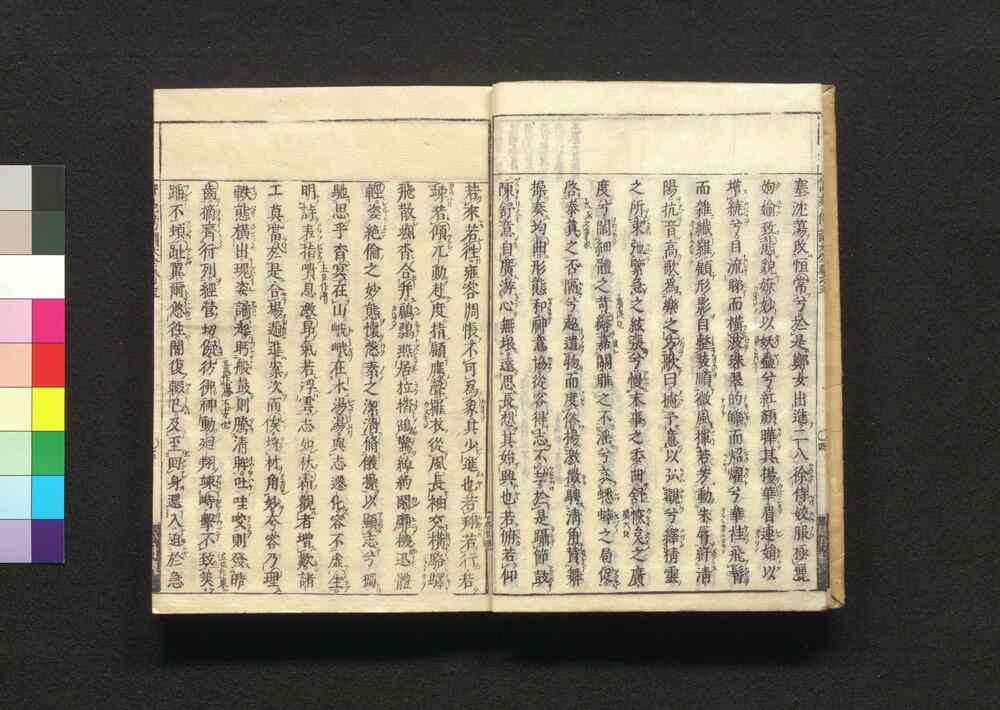 塞沈蕩改恒常兮於是鄭女出進二八徐侍姣服極麗
姁媮致態貌嫽妙以妖蠱兮紅顏曄其揚華眉連娟以
增繞兮目流睇而橫波珠翠的皪而炤燿兮華袿飛髾
而雜纖羅顧形影自整裝順微風揮若芳動朱脣紆清
陽抗音高歌爲樂之方歌曰攄予意以弘觀兮繹精靈
之所束弛緊急之絃張兮慢末事之委曲舒恢炱之廣
度兮闊細體之苛縟嘉關雎之不淫兮哀蟋蟀之局促
啓泰眞之否隔兮超遺物而度俗揚激徵騁淸角贊舞
操奏均曲形態和神意協從容得志不劫於是躡節鼓
陳舒意自廣游心無垠遠思長想其始興也若俯若仰
若來若往雍容惆悵不可爲象其少進也若翔若行若
竦若傾兀動赴度指顧應聲羅衣從風長袖交橫駱驛
飛散颯沓合幷鶣䴕燕居拉㧺鵠驚綽約閑靡機迅體
輕姿絕倫之妙態懷慤素之潔淸脩儀操以顯志兮獨
馳思乎杳冥在山峨峨在水湯湯與志遷化容不虛生
明詩表指嘳息激昂氣若浮雲志如秋霜觀者增歎諸
工莫當於是合場遞進案次而俟埒材角妙夸容乃理
軼態橫出瑰姿譎起眄般鼓則騰淸眸吐哇咬則發皓
齒摘齊行列經營切儗彷彿神動迴翔竦峙擊不致筴
蹈不頓趾翼爾悠往闇復輟已及至回身還入迫於急